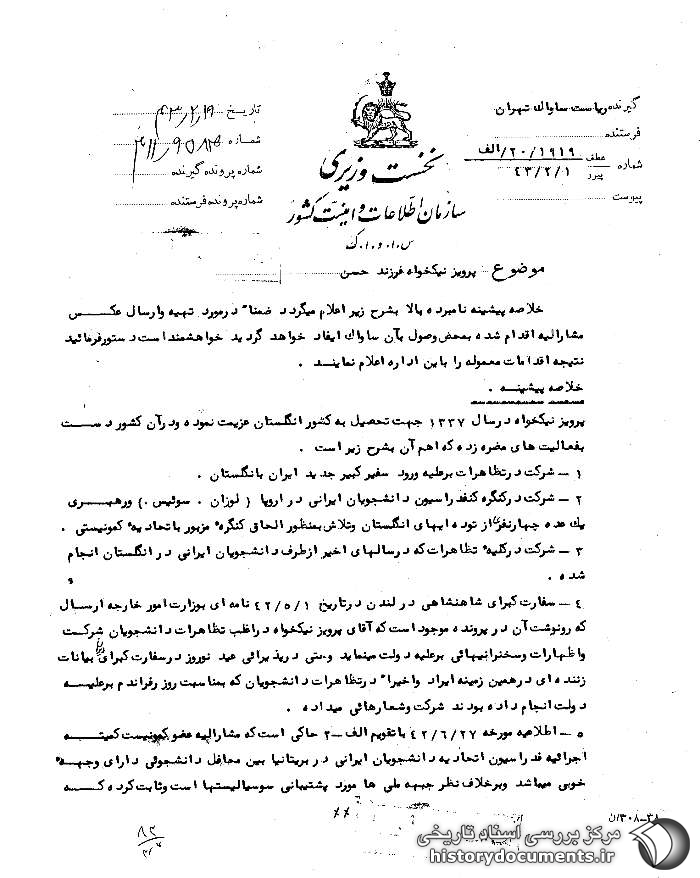 گیرنده ریاست ساواک تهران
فرستنده
شماره عطف ۱۹۱۹/۲۰/الف
پیرو ۴۳/۲/۱
پیوست
نخست وزیری
سازمان اطلاعات و امنیت کشور
تاریخ ۴۳/۲/۱۹
شماره
شماره پرونده گیرنده
شماره پرونده فرستنده
موضوع پرویز نیکخواه فرزند حسن
خلاصه پیشینه نامبرده بالا بشرح زیر اعلام میگردد ضمناً درمورد تهیه وارسال عکس
مشارالیه اقدام شده بمحض وصول بآن ساواک ایفاد خواهد گردید خواهشمند است دستورفرمائید
نتیجه اقدامات معموله را باین اداره اعلام نمایند .
خلاصه پیشینه .
پرویز نیکخواه درسال ۱۳۳۷ جهت تحصیل به کشور انگلستان عزیمت نموده ودرآن کشور دست
بفعالیت های مضره زده که اهم آن بشرح زیر است .
۱ – شرکت درتظاهرات برعلیه ورود سفیر کبیر جدید ایران بانگلستان .
۲ – شرکت درکنگره کنفدراسیون دانشجویان ایرانی در اروپا ( لوزان . سوئیس .) ورهبری
یک عده چهارنفری از توده ایهای انگلستان وتلاش بمنظور الحاق کنگره مزبور باتحادیه کمونیستی .
۳ – شرکت درکلیه تظاهرات که درسالهای اخیر ازطرف دانشجویان ایرانی در انگلستان انجام
شده .
۴ – سفارت کبرای شاهنشاهی در لندن درتاریخ ۴۲/۵/۱ نامه ای بوزارت امور خارجه ارسال
که رونوشت آن در پرونده موجود است که آقای پرویز نیکخواه دراغلب تظاهرات دانشجویان شرکت
واظهارات وسخنرانیهائی برعلیه دولت مینماید وحتی در پذیرائی عید نوروز درسفارت کبرای ما بیانات
زننده ای درهمین زمینه ایراد واخیراً درتظاهرات دانشجویان که بمناسبت روز رفراندم برعلیه
دولت انجام داده بودند شرکت وشعارهائی میداده .
۵ – اطلاعیه مورخه ۴۲/۶/۲۷ باتقویم الف–۲ حاکی است که مشارالیه عضو کمونیست کمیته
اجرائیه فدراسیون اتحادیه دانشجویان ایرانی در بریتانیا بین محافل دانشجوئی دارای وجهه
خوبی میباشد وبرخلاف نظر جبهه ملی ها مورد پشتیبانی سوسیالیستها است وثابت کرده که
۳۸–۳۰۸/ن
مرکز بررسی اسناد تاریخی
historydocuments.ir